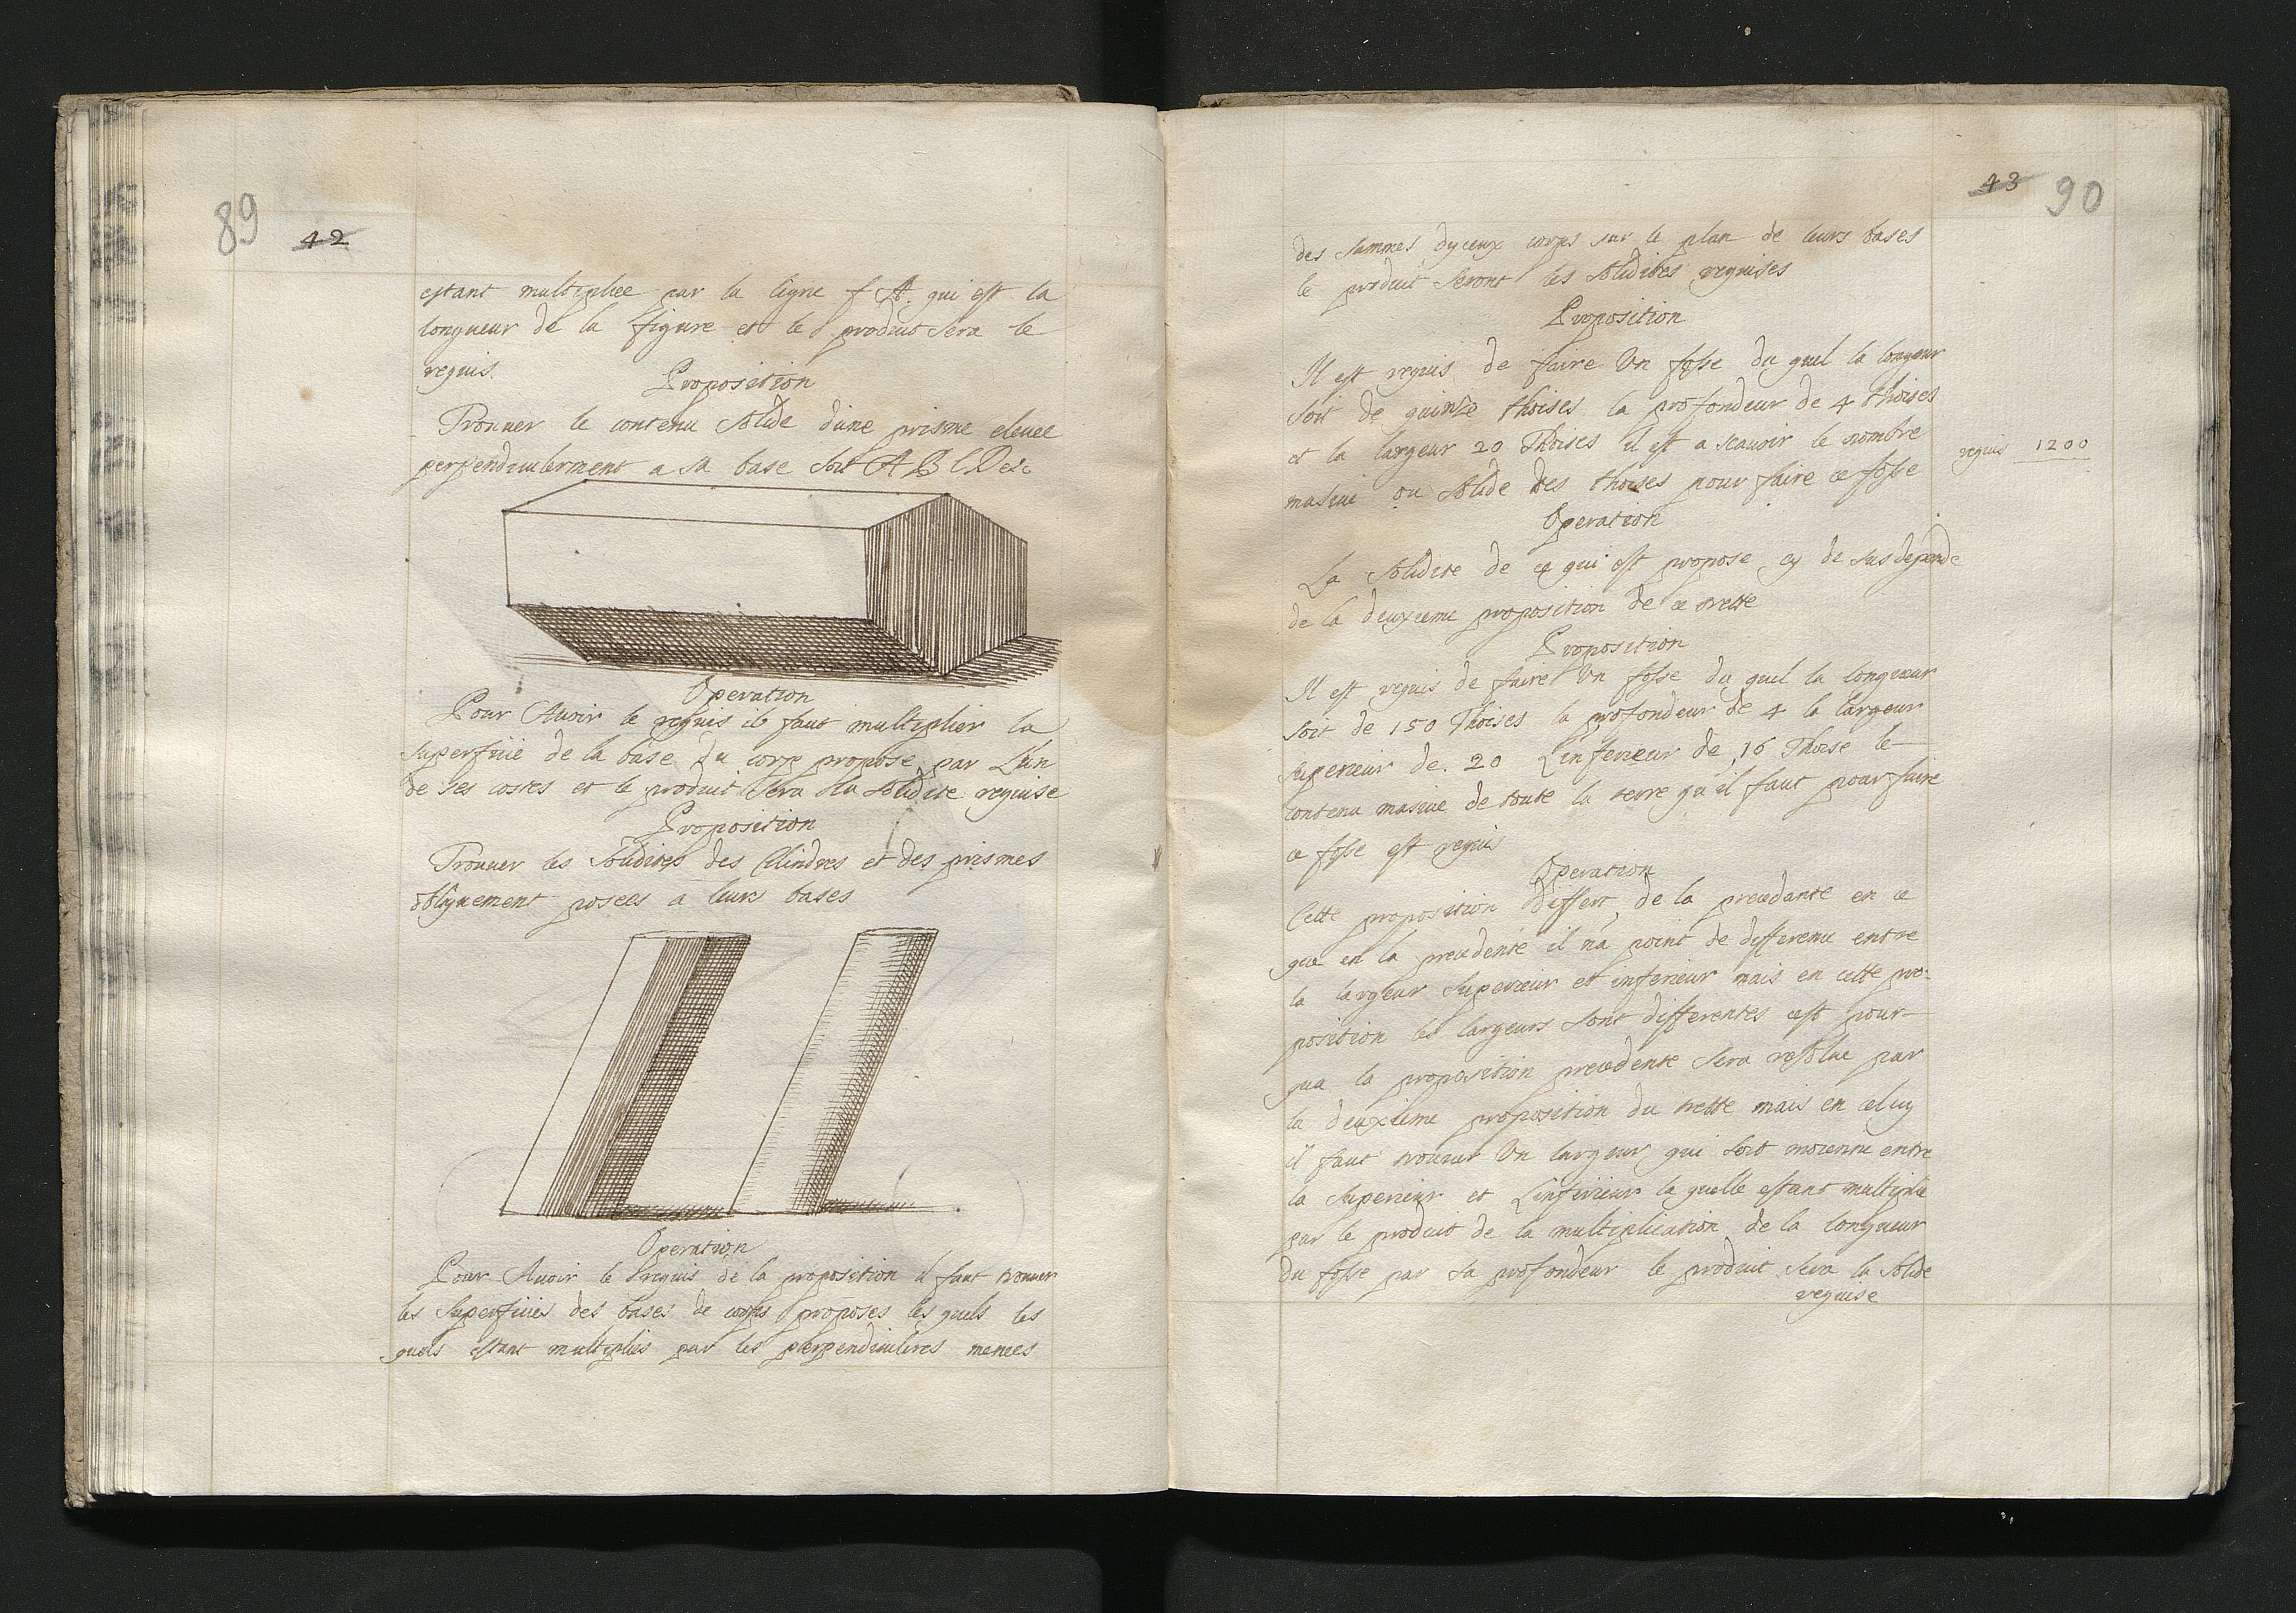 89
42
estant multipliee par la ligne f A. qui est la
longueur de la figure et le produit sera le
requis.
Proposition
Trouver le contenu solide d'une prisme elevee
perpendiculerment a sa base soit A B C D etc
Operation
Pour Avoir le requis il faut multiplier la
superficie de la base du corp propose par L'un
de ses costes et le produit sera la solidite requise
Proposition
Trouver les Solidites des Cilindres et des prismes
obliquement posees a leurs bases
Operation
Pour Avoir le requis de la proposition il faut trouver
les superficies des bases de corps proposes les quels les
quels estant multiplies par les perpendiculeres menees
43 90
des sommes dyceux corps sur le plan de leurs bases
le produit seront les solidites requises
Proposition
Il est requis de faire Un fosse du quel la longeur
soit de quinze thoises la profondeur de 4 thoises
et la largeur 20 Thoises il est a scavoir le nombre
masive ou solide des thoises pour faire ce fosse
requis 1200
Operation
La solidite de ce qui est propose cy de sus depende
de la deuxieme proposition de ce trette
Proposition
Il est requis de faire Un fosse du quel la longueur
soit de 150 Thoises la profondeur de 4 la largeur
superieur de 20 L'inferieur de 16 Thoise le
contenu masive de toute la terre qu'il faut pour faire
ce fosse est requis
Operation
Cette proposition differt de la precedante en ce
que en la precedente il n'a point de differenu entre
la largeur superieur et inferieur mais en cette pro-
position les largeurs sont differentes cest pour-
qua la proposition precedente sera resolue par
la deuxieme proposition du trette mais en celuy
il faut trouver Un largeur qui soit moienne entre
la superieur et L'inferieur la quelle estant multiplie
par le produit de la multiplication de la longueur
du fosse par sa profondeur le produit sera la solide
requise